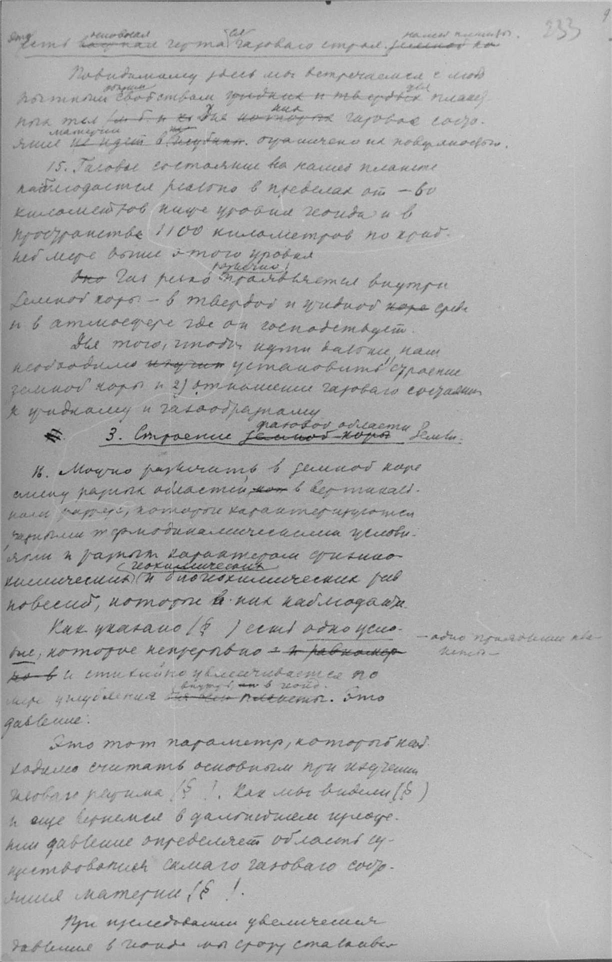 233
есть газоваго строя нашей планеты.
Повидимому здесь мы встречаемся с любо
пытным свойством планет
ных тел Для них газовое состо-
яние материи ограничено их поверхностью.
15. Газовое состояние на нашей планете
наблюдается реально в пределах от – 60
километров ниже уровня геоида и в
пространстве 1100 километров по край-
ней мере выше этого уровня
Оно Газ резко проявляется внутри
земной коры – в твердой и жидкой коре среде
и в атмосфере где он господствует.
Для того, чтобы идти дальше, нам
необходимо установить строение
земной коры и 2) отношение газоваго состояния
к жидкому и газообразному
3. Строение земной коры газовой области Земли.
16. Можно различить в земной коре
смену разных областей в вертикаль-
ном разрезе, которые характеризуются
разными термодинамическими услови-
ями и разным характером физико-
химических геохимических и биогеохимических рав
новесий, которые в них наблюдаются.
Как указано (§ ) есть одно усло-
вие, которое непрерывно – и равномер
но – и стихийно увеличивается по
мере углубления в геоид. Это
давление.
Это тот параметр, который необ
ходимо считать основным при изучении
газоваго режима (§ ). Как мы видели (§ )
и еще вернемся в дальнейшем изложе-
нии давление определяет область су-
ществования самаго газоваго состо-
яния материи (§ ).
При исследовании увеличения
давления в геоиде мы сразу сталкива